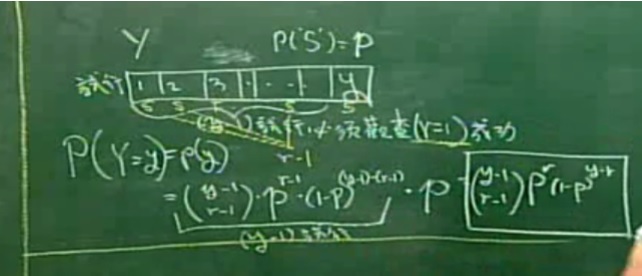 Y P(S)=P
試行 1 2 3 · · · y
S S F S S
(y-1)試行,必須觀查(r-1)成功
r-1
P(Y=y)=p(y)
=(y-1 r-1)·p^{r-1}·(1-p)^{(y-1)-(r-1)}·p=(y-1 r-1)p^r(1-p)^{y-r}
(y-1)試行